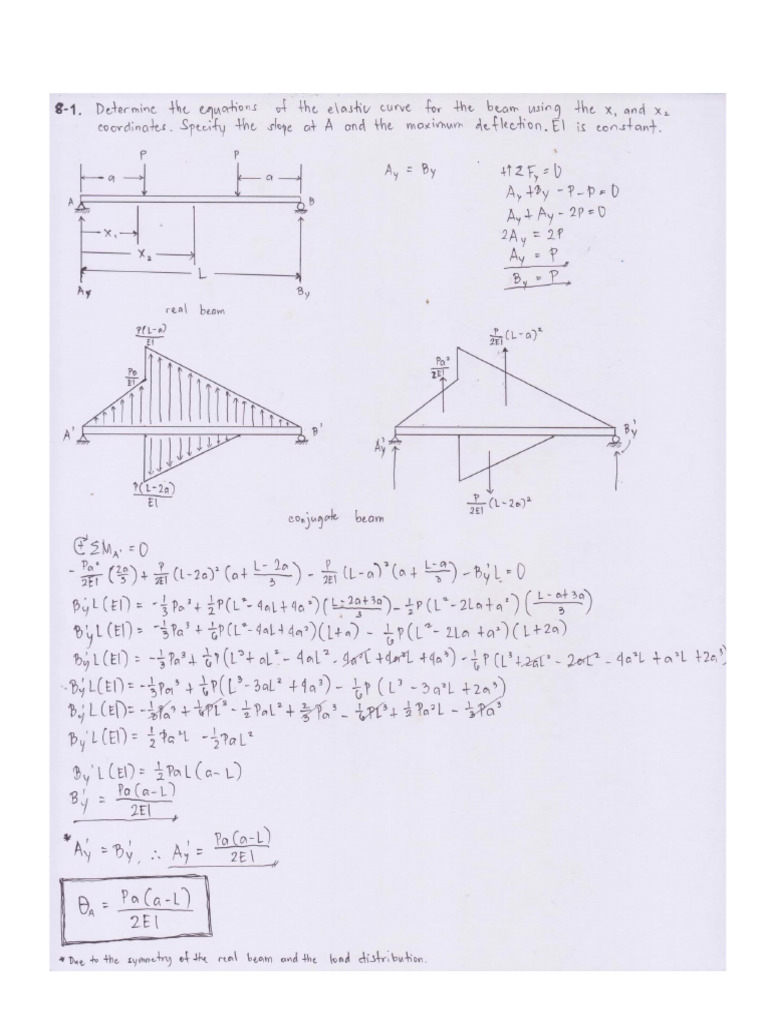 8-1. Determine the equations of the elastic curve for the beam using the x₁ and x₂
coordinates. Specify the slope at A and the maximum deflection. EI is constant.
P P
a a
A B
x₁
x₂
L
Ay By
real beam
Ay = By
+↑ΣFy = 0
Ay + By - P - P = 0
Ay + Ay - 2P = 0
2Ay = 2P
Ay = P
By = P
P(L-a)/EI
Pa/EI
A' B'
P(L-2a)/EI
P/2EI (L-a)²
Pa²/2EI
Ay' By'
P/2EI (L-2a)²
conjugate beam
+ ΣMA' = 0
- Pa²/2EI (2a/3) + P/2EI (L-2a)² (a + L-2a/3) - P/2EI (L-a)² (a + L-a/3) - By'L = 0
By'L(EI) = -1/3 Pa³ + 1/2 P(L² - 4aL + 4a²) (L-2a+3a/3) - 1/2 P(L² - 2La + a²) (L-a+3a/3)
By'L(EI) = -1/3 Pa³ + 1/6 P(L² - 4aL + 4a²)(L+a) - 1/6 P(L² - 2La + a²)(L+2a)
By'L(EI) = -1/3 Pa³ + 1/6 P(L³ + aL² - 4aL² - 4a²L + 4a²L + 4a³) - 1/6 P(L³ + 2aL² - 2aL² - 4a²L + a²L + 2a³)
By'L(EI) = -1/3 Pa³ + 1/6 P(L³ - 3aL² + 4a³) - 1/6 P(L³ - 3a²L + 2a³)
By'L(EI) = -1/3 Pa³ + 1/6 PL³ - 1/2 PaL² + 2/3 Pa³ - 1/6 PL³ + 1/2 Pa²L - 1/3 Pa³
By'L(EI) = 1/2 Pa²L - 1/2 PaL²
By'L(EI) = 1/2 PaL(a-L)
By' = Pa(a-L)/2EI
* Ay' = By', ∴ Ay' = Pa(a-L)/2EI
θA = Pa(a-L)/2EI
* Due to the symmetry of the real beam and the load distribution.